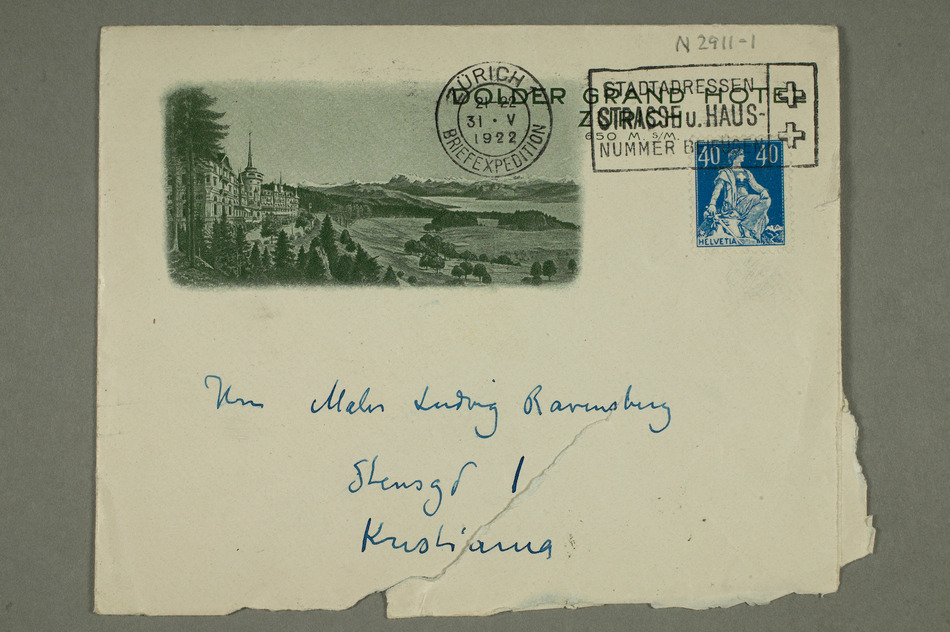 N 2911-1
DOLDER GRAND HOTEL
ZÜRICH
650 M. S/M.
ZÜRICH
21-22
31 · V
1922
BRIEFEXPEDITION
STADTADRESSEN
STRASSE u. HAUS-
NUMMER BEIFÜGEN
40 40
HELVETIA
Herrn Maler Ludvig Ravensberg
Stensgd 1
Kristiania